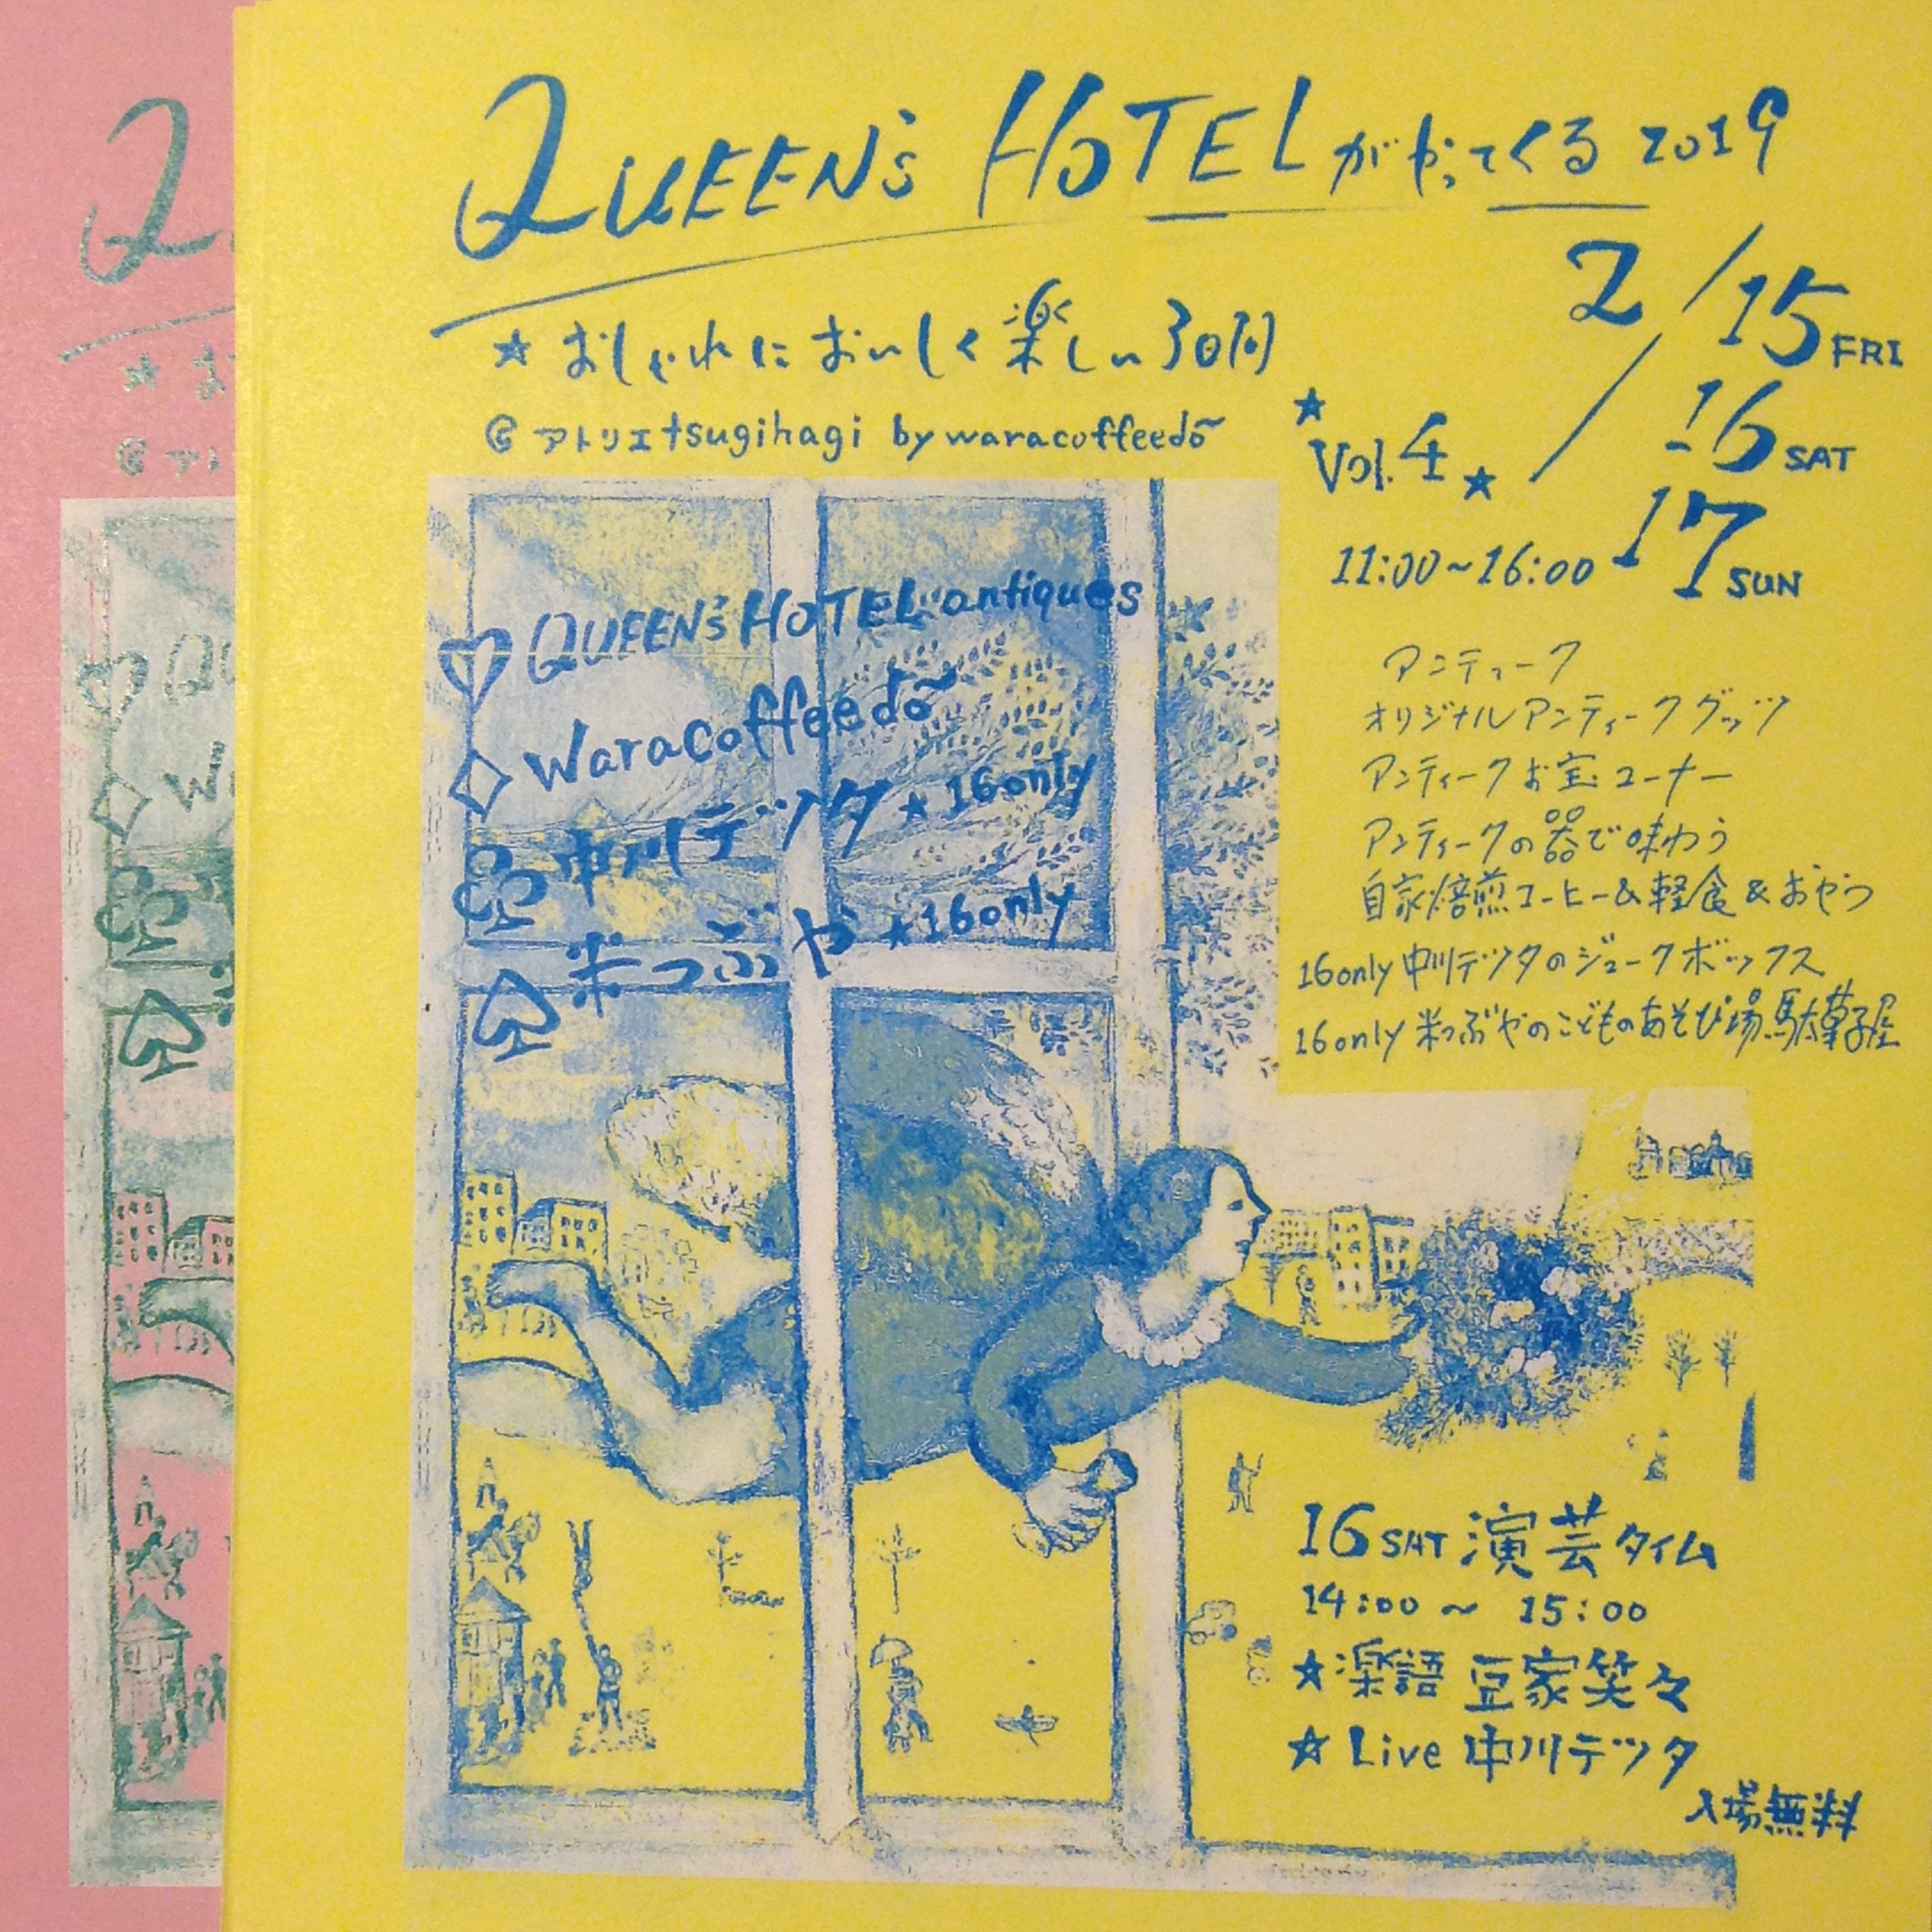 QUEEN's HOTELがやってくる 2019
★ おしゃれにおいしく楽しい3日間
@ アトリエtsugihagi by waracoffeedō
2/15 FRI
16 SAT
17 SUN
★ Vol.4 ★
11:00~16:00
♡ QUEEN's HOTEL antiques
♢ Waracoffeedō
♧ 中川テツタ ★16only
♤ 米つぶや ★16only
アンティーク
オリジナルアンティークグッツ
アンティークお宝コーナー
アンティークの器で味わう
自家焙煎コーヒー&軽食&おやつ
16only 中川テツタのジュークボックス
16only 米つぶやのこどものあそび場 駄菓子屋
16 SAT 演芸タイム
14:00 ~ 15:00
☆楽語 豆家笑々
☆Live 中川テツタ
入場無料
Q
★ お
@ アト
♡ QU
♢ W
♧
♤